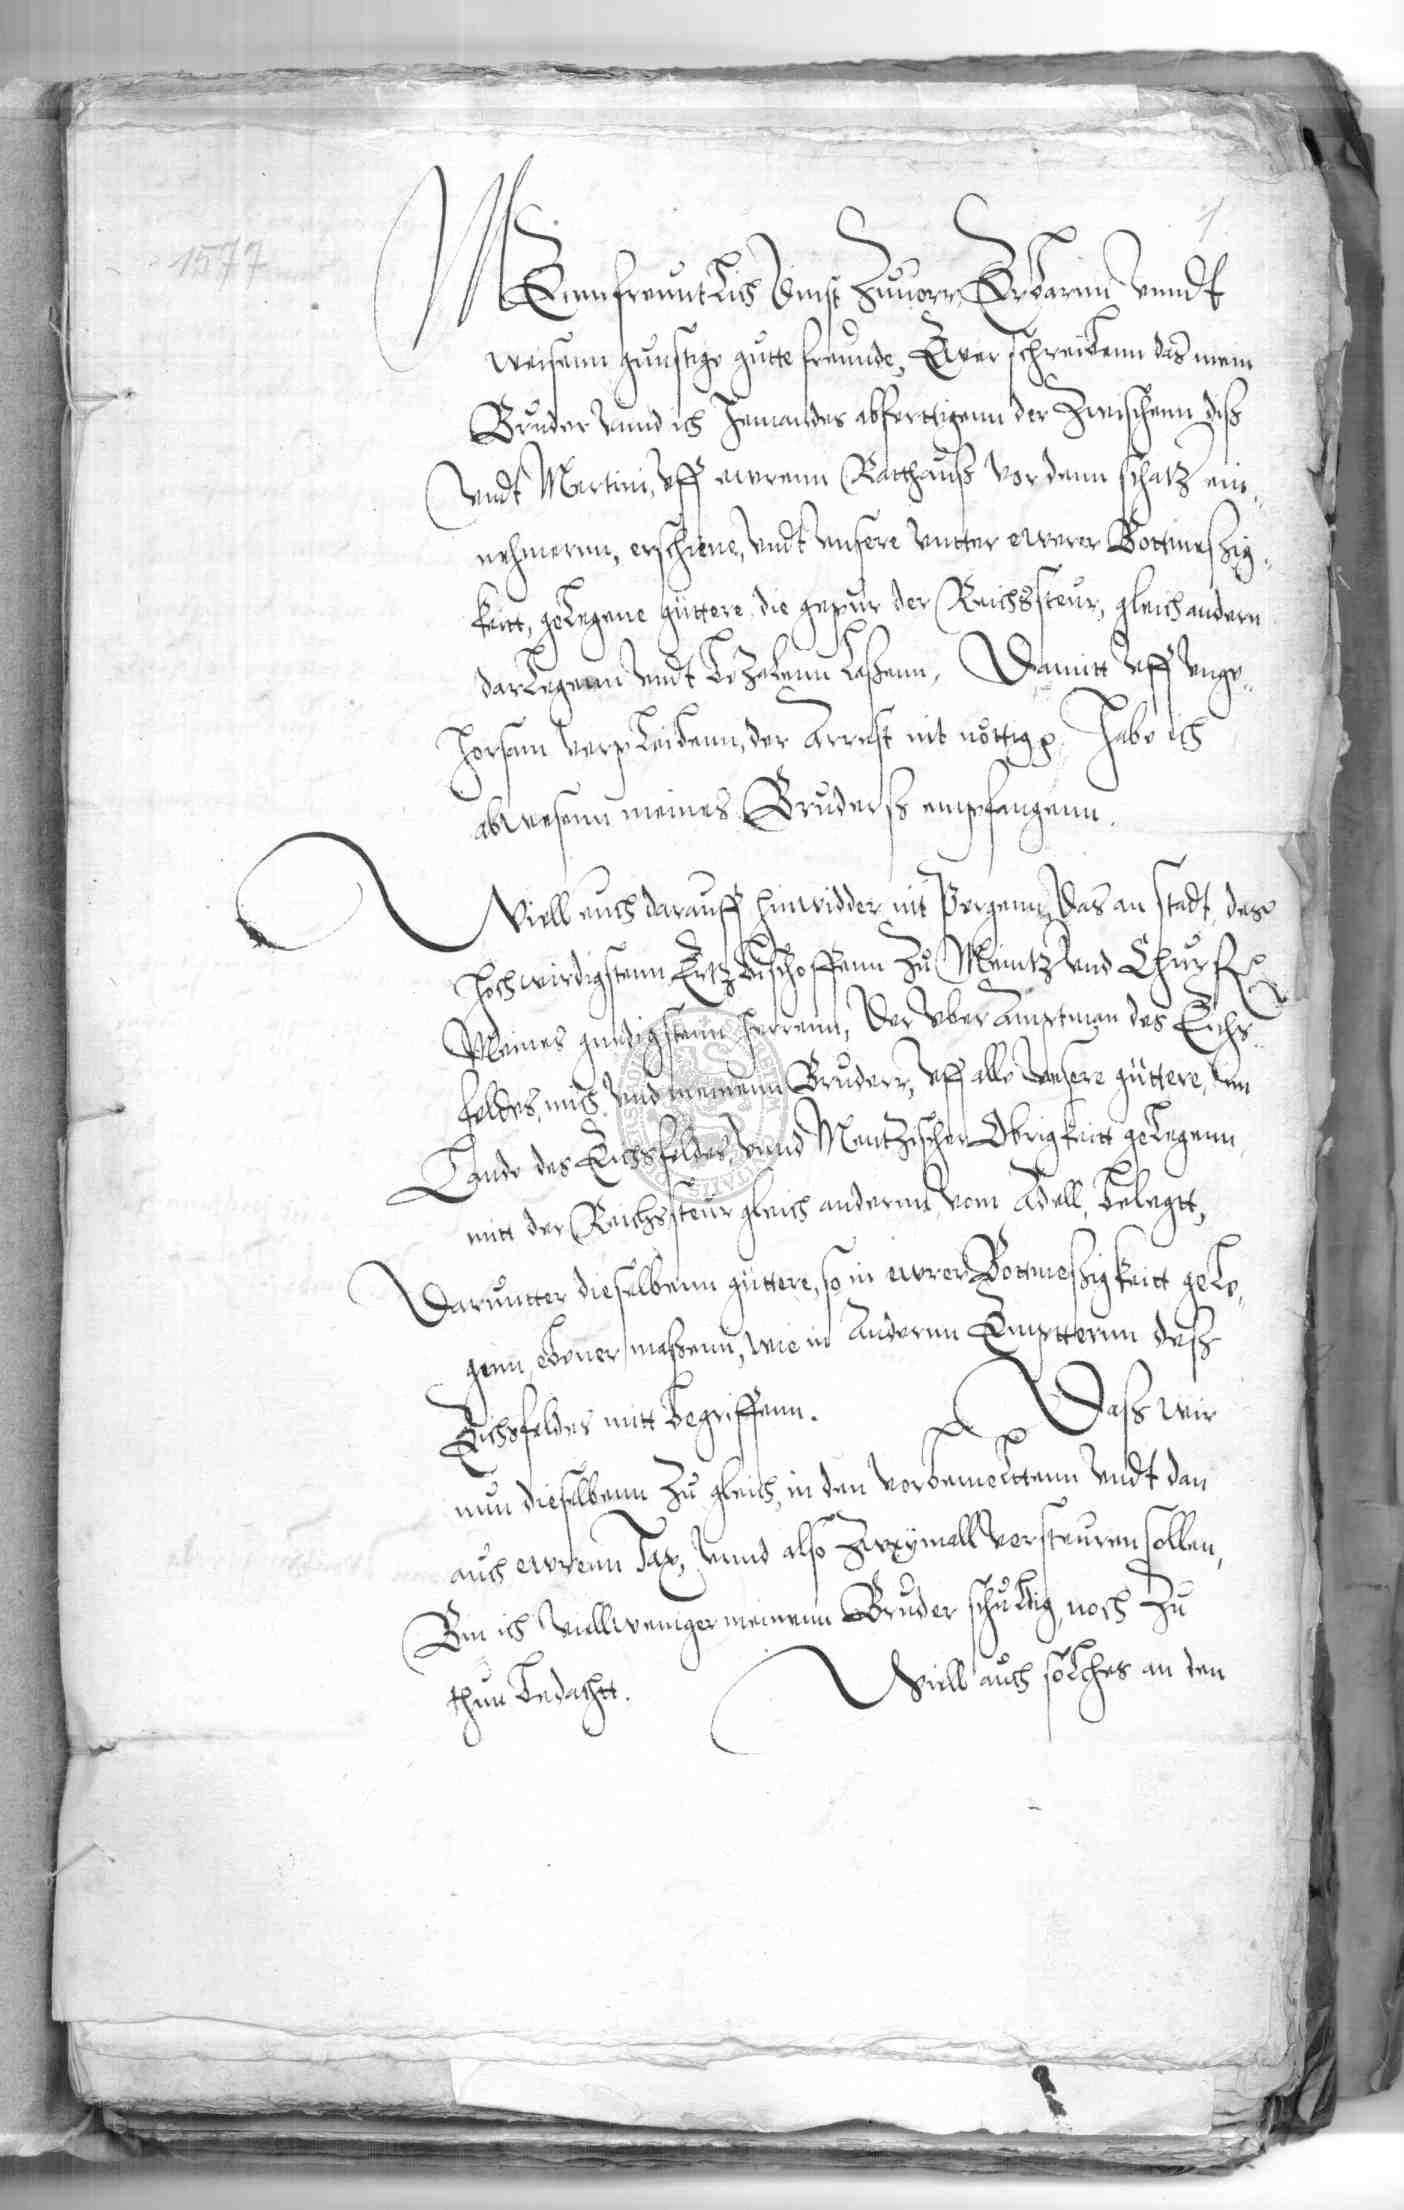 1577
1.
MEinn freuntlich dinst zuuorr, Erbarnn vnndt
weisenn gunstige gutte freunde, Ewer schreibenn das mein
Bruder vnnd ich Jemandes abferttigenn der zwischenn diß
vndt Martini, vff ewrenn Ratthauß vor denn schatz ein„
nehmernn, erschiene, vndt vnsere vntter ewerer Bottmeßig„
keitt, gelegene güttere, die gepur der Reichssteur, gleich andern
darlegenn vndt bezalenn laßenn, Damitt vff vnge„
horsam verpleibenn, der Arrest nit nöttig, Habe ich
abwesenn meines Bruderß empfangenn.
Will euch darauff hinwidder nit pergenn, Das an stadt, des
hochwirdigstenn Ertzbischoffenn zu Meintz vnd Churf
Meines gnedigstenn herrenn, Der vber Amptman des Eichs„
feldes, mich vnd meinenn Bruderr, vff alle vnsere güttere, im
Lande des Eichsfeldes, vnnd Mentzischer Obrigkeitt gelegenn,
mitt der Reichssteur gleich andernn, vom Adell, belegtt,
Daruntter dieselbenn güttere, so in ewrer Bottmeßigkeitt gele„
genn, ebener maßenn, wie in Andernn Empternn deß
Eichsfeldes mitt begriffenn. Daß wir
nun dieselbenn zu gleich, in den vorbemeltenn vndt dan
auch ewrenn Tax, vnnd also zweymall versteuren sollen,
Bin ich viellweniger meinenn Bruder schuldig, noch zu
thun bedachtt. Will auch solches an den